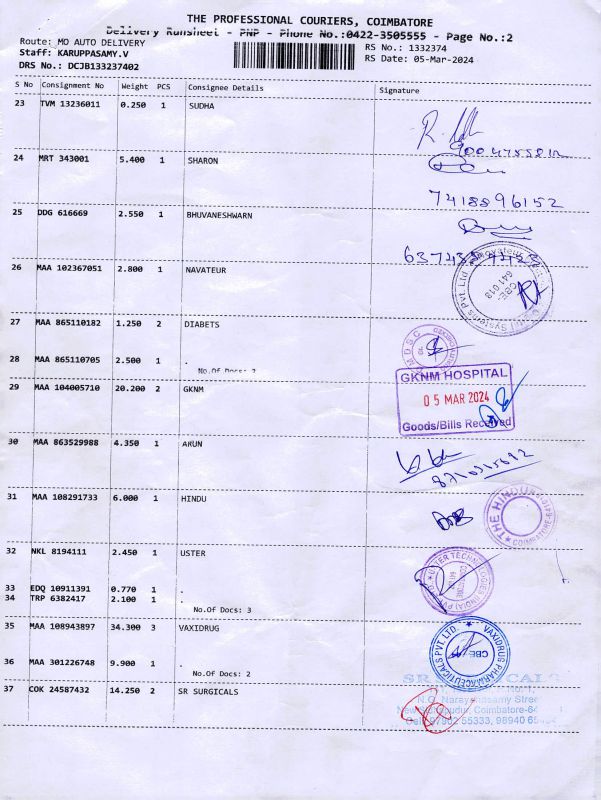 THE PROFESSIONAL COURIERS, COIMBATORE
Delivery Runsheet - PNP - Phone No.:0422-3505555 - Page No.:2
Route: MO AUTO DELIVERY
RS No.: 1332374
Staff: KARUPPASAMY.V
RS Date: 05-Mar-2024
DRS No.: DCJB133237402
S No Consignment No Weight PCS Consignee Details Signature
23 TVM 13236011 0.250 1 SUDHA
24 MRT 343001 5.400 1 SHARON
7418896152
25 DDG 616669 2.550 1 BHUVANESHWARN
26 MAA 102367051 2.800 1 NAVATEUR
641 013
CBE
27 MAA 865110182 1.250 2 DIABETS
MDSC
28 MAA 865110705 2.500 1 .
No.Of Docs: 2
GKNM HOSPITAL
29 MAA 104005710 20.200 2 GKNM
05 MAR 2024
Goods/Bills Received
30 MAA 863529988 4.350 1 ARUN
31 MAA 108291733 6.000 1 HINDU
THE HINDU
COIMBATORE
32 NKL 8194111 2.450 1 USTER
USTER TECHNOLOGIES (INDIA)
33 EDQ 10911391 0.770 1 .
34 TRP 6382417 2.100 1 .
No.Of Docs: 3
35 MAA 108943897 34.300 3 VAXIDRUG
VAXIDRUG PHARMACEUTICALS PVT. LTD.
CBE
36 MAA 301226748 9.900 1 .
No.Of Docs: 2
SR SURGICALS
37 COK 24587432 14.250 2 SR SURGICALS
N.G. Narayanasamy Street
Coimbatore-64
55333, 98940